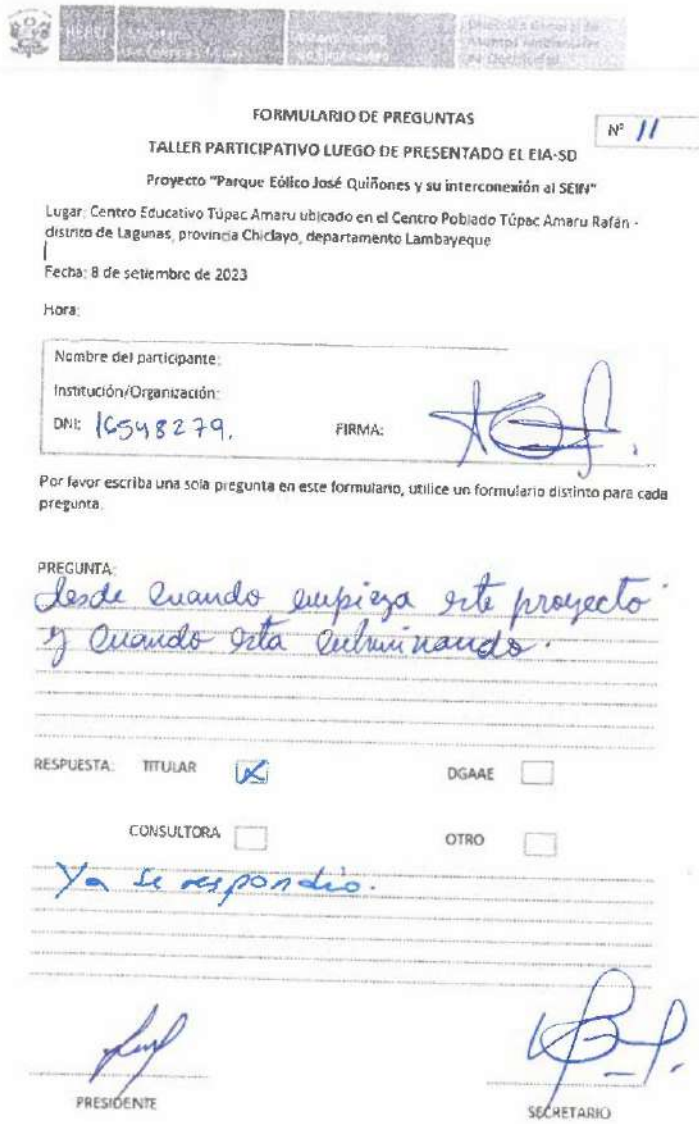 PERÚ
FORMULARIO DE PREGUNTAS
Nº 11
TALLER PARTICIPATIVO LUEGO DE PRESENTADO EL EIA-SD
Proyecto "Parque Eólico José Quiñones y su interconexión al SEIN"
Lugar: Centro Educativo Túpac Amaru ubicado en el Centro Poblado Túpac Amaru Rafán -
distrito de Lagunas, provincia Chiclayo, departamento Lambayeque
Fecha: 8 de setiembre de 2023
Hora:
Nombre del participante:
Institución/Organización:
DNI: 16548279.
FIRMA:
Por favor escriba una sola pregunta en este formulario, utilice un formulario distinto para cada
pregunta.
PREGUNTA:
desde cuando empieza este proyecto
y cuando esta culminando.
RESPUESTA: TITULAR
DGAAE
CONSULTORA
OTRO
Ya se respondio.
PRESIDENTE
SECRETARIO